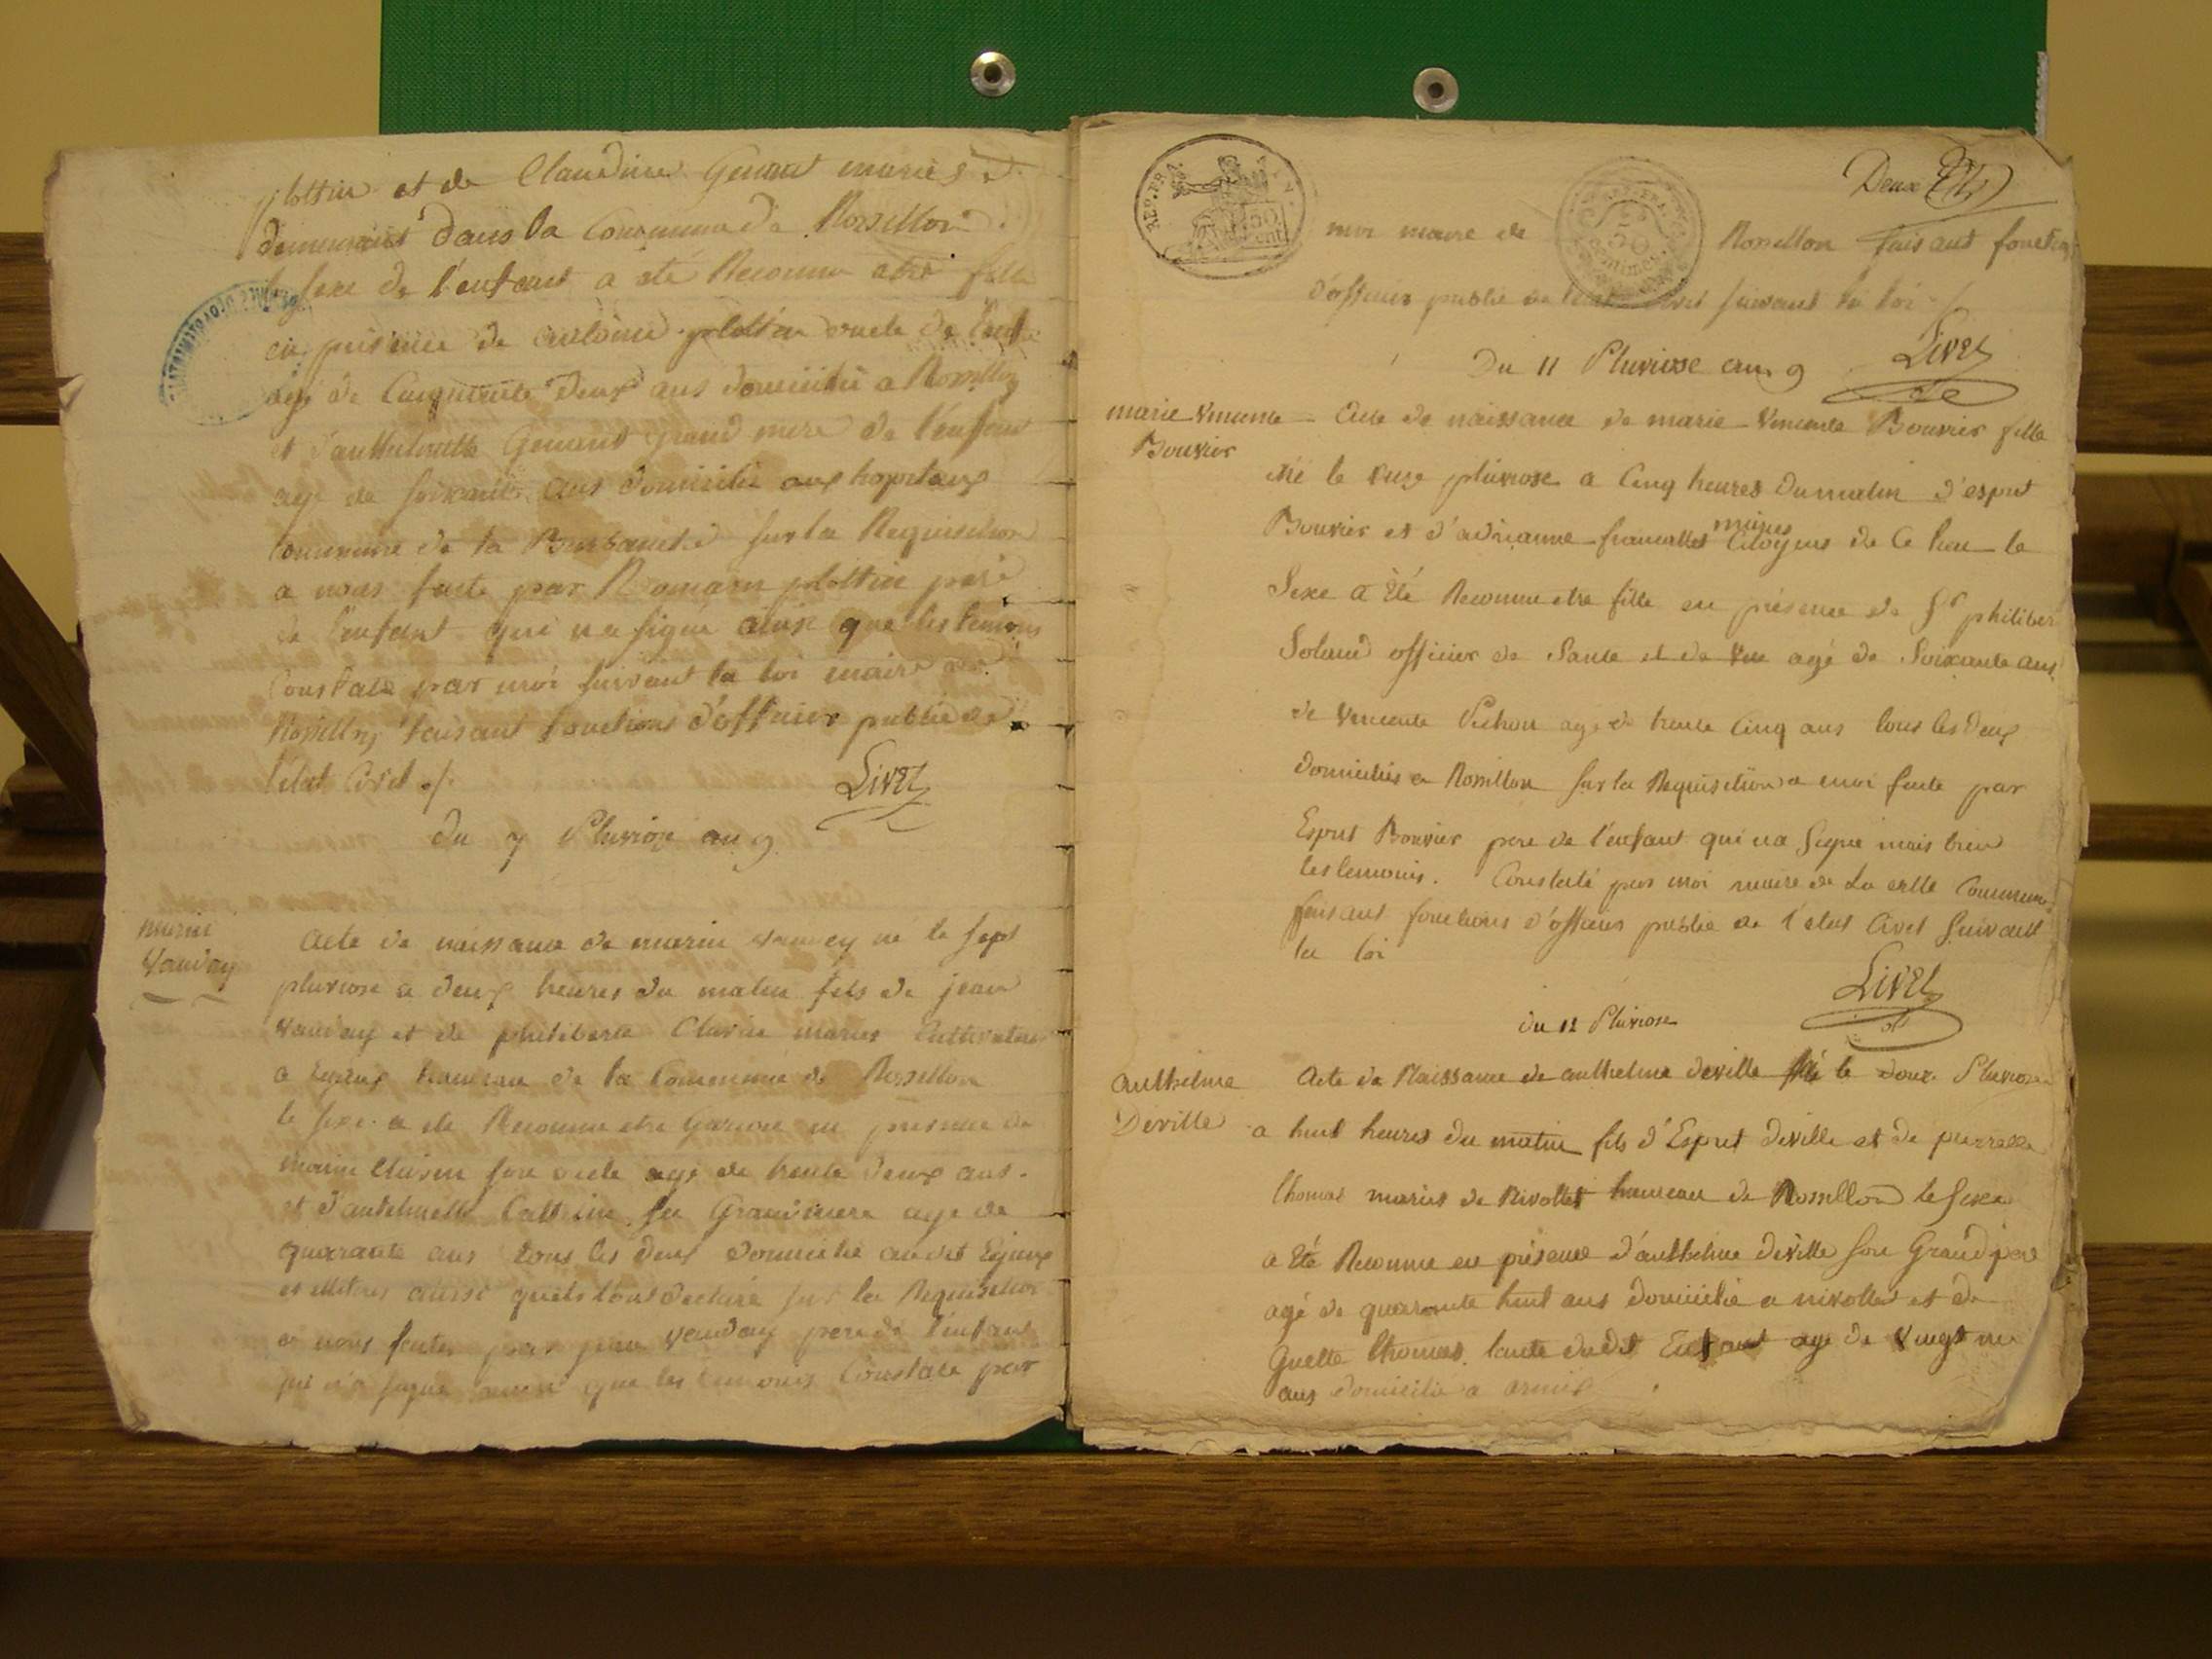 plottin et de Claudine Genand mariés et
demeurants dans la Commune de Rossillon
le sexe de l'enfant a eté Reconnu etre fille
en présence de antoine plottin oncle de l'enft
agé de Cinquante Deux ans domicilié a Rossillon
et d'anthelmette Genand grand mere de l'enfant
age de soixante ans domicilié aux hopitaux
commune de la Burbanche sur la Requisition
a nous faite par Romain plottin pere
de l'enfant qui n'a signé ainsi que les temoins
Constaté par moi suivant la loi maire de
Rossillon faisant fonctions d'officier public de
l'état Civil ./.
Livet
du 7 Pluviose an 9
marin
Vauday
acte de naissance de marin vauday né le sept
pluviose a deux heures du matin fils de jean
vauday et de philiberte Clavin mariés Cultivateurs
a Eyjeux hameau de la Commune de Rossillon
le sexe a ete Reconnu etre Garçon en presence de
marin Clavin son oncle age de trente deux ans.
et d'anthelmette Cattelin sa Grandmere age de
quarante ans tous les deux domicilié audit Eyjeux
et illitrés ainsi quils l'ont declaré sur la Requisition
a nous faite par jean vauday pere de l'enfant
qui n'a signé ainsi que les temoins Constaté par
Deux
REP. FRA.
50
cent
50
centimes
moi maire de Rossillon faisant fonction
d'officier public de l'etat civil suivant la loi ./.
Livet
Du 11 Pluviose an 9
marie Vincente
Bouvier
Acte de naissance de marie Vincente Bouvier fille
né le onze pluviose a Cinq heures du matin d'esprit
Bouvier et d'adrianne francillet mariés Citoyens de Ce lieu le
Sexe a Eté Reconnu etre fille en présence de Sr philiber
Soland officier de Santé et de agé de Soixante ans
de Vincente Pichon agé de trente Cinq ans tous les deux
domiciliés a Rossillon sur la Requisition a moi faite par
Esprit Bouvier pere de l'enfant qui n'a signé mais bien
les temoins. Constaté par moi maire de La dite Commune
faisant fonctions d'officier public de l'état Civil suivant
la loi
Livet
du 12 Pluviose
anthelme
Deville
Acte de Naissance de anthelme deville né le douze Pluviose
a huit heures du matin fils d'Esprit deville et de pierrette
thomas mariés de Nivollet hameau de Rossillon le sexe
a Eté Reconnu en présence d'anthelme deville son Grand pere
agé de quarante huit ans domicilié a nivollet et de
thomas tante dudit Enfant age de vingt un
ans domicilié a armix